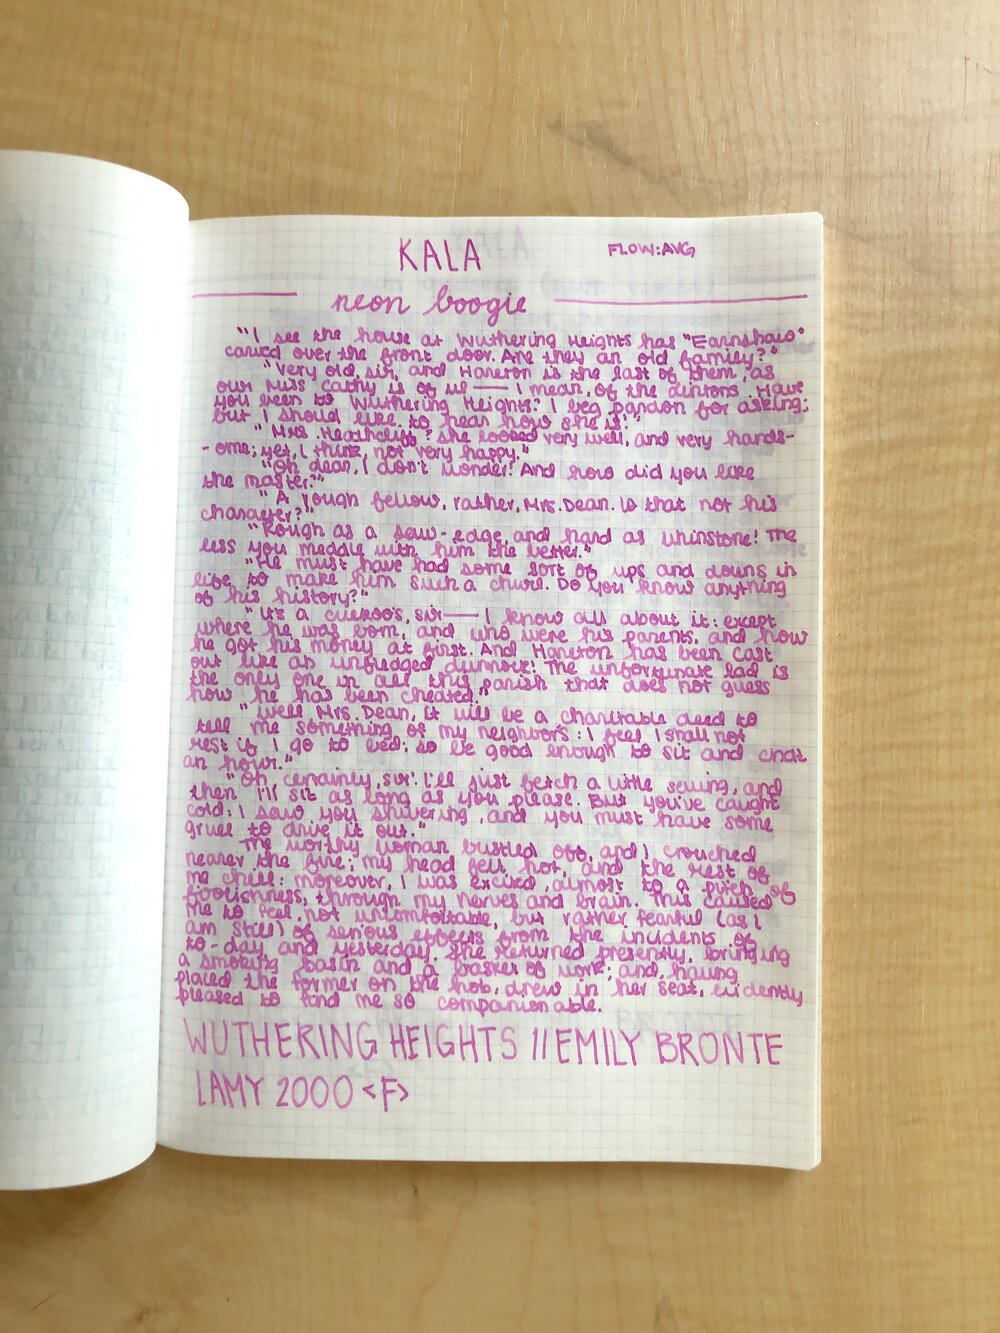 KALA
FLOW: AVG
neon boogie
"I see the house at Wuthering Heights has "Earnshaw"
carved over the front door. Are they an old family?"
"Very old, sir, and Hareton is the last of them, as
our Miss Cathy is of us — I mean, of the Lintons. Have
you been to Wuthering Heights? I beg pardon for asking;
but I should like to hear how she is."
"Mrs. Heathcliff? She looked very well, and very hands-
-ome; yet, I think, not very happy."
"Oh dear, I don't wonder! And how did you like
the master?"
"A rough fellow, rather, Mrs. Dean. Is that not his
character?"
"Rough as a saw-edge, and hard as whinstone! The
less you meddle with him the better."
"He must have had some sort of ups and downs in
life to make him such a churl. Do you know anything
of his history?"
"It's a cuckoo's, sir — I know all about it: except
where he was born, and who were his parents, and how
he got his money at first. And Hareton has been cast
out like an unfledged dunnock! The unfortunate lad is
the only one in all this parish that does not guess
how he has been cheated."
"Well Mrs. Dean, it will be a charitable deed to
tell me something of my neighbors: I feel I shall not
rest if I go to bed; so be good enough to sit and chat
an hour."
"Oh certainly, sir! I'll just fetch a little sewing, and
then I'll sit as long as you please. But you've caught
cold: I saw you shivering, and you must have some
gruel to drive it out."
The worthy woman bustled off, and I crouched
nearer the fire; my head felt hot, and the rest of
me chill: moreover, I was excited, almost to a pitch of
foolishness, through my nerves and brain. This caused
me to feel, not uncomfortable, but rather fearful (as I
am still) of serious effects from the incidents of
to-day and yesterday. She returned presently, bringing
a smoking basin and a basket of work; and, having
placed the former on the hob, drew in her seat, evidently
pleased to find me so companionable.
WUTHERING HEIGHTS // EMILY BRONTE
LAMY 2000 <F>